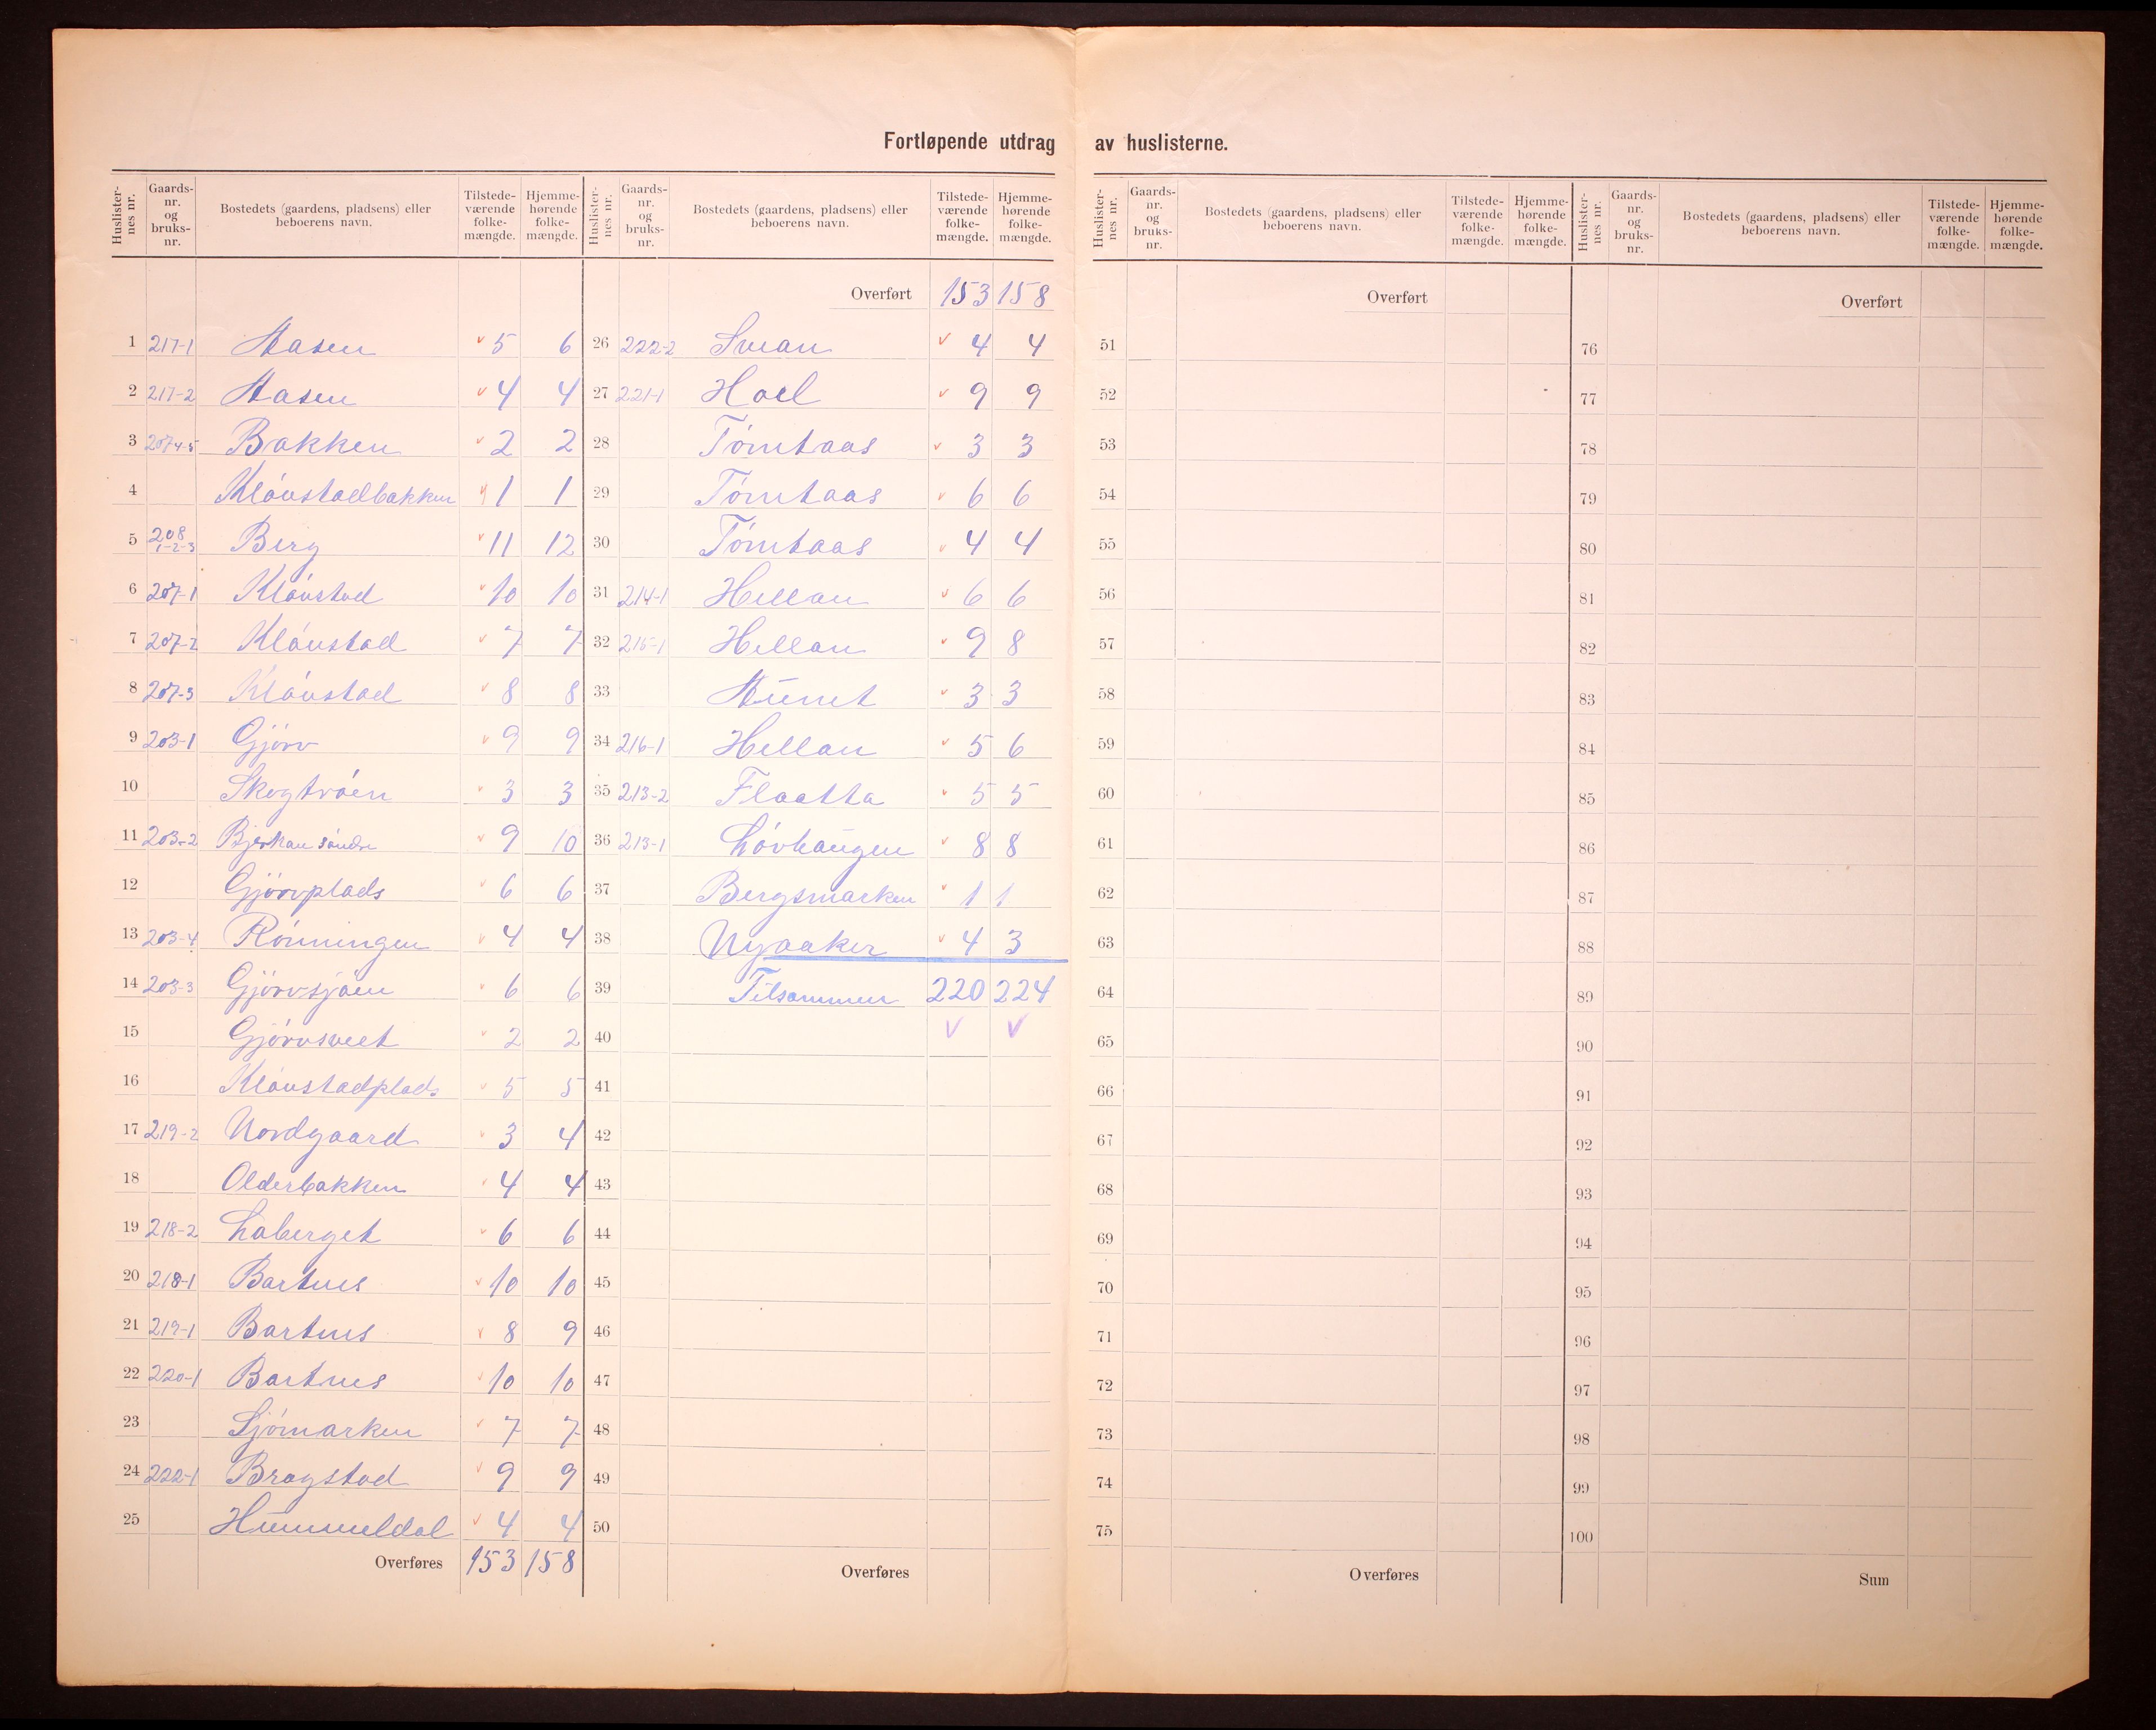 Fortløpende utdrag av huslisterne.
Huslister-nes nr. Gaards-nr. og bruks-nr. Bostedets (gaardens, pladsens) eller beboerens navn. Tilstede-værende folke-mængde. Hjemme-hørende folke-mængde.
1 217-1 Aasen v 5 6
2 217-2 Aasen v 4 4
3 207 4-5 Bakken v 2 2
4 Klóvstadbakken v 1 1
5 208 1-2-3 Berg v 11 12
6 207-1 Klóvstad v 10 10
7 207-2 Klóvstad v 7 7
8 207-3 Klóvstad v 8 8
9 203-1 Gjórv v 9 9
10 Skogtróen v 3 3
11 203-2 Bjerkan sóndre v 9 10
12 Gjórvplads v 6 6
13 203-4 Rónningen v 4 4
14 203-3 Gjórvsjóen v 6 6
15 Gjórvsveet v 2 2
16 Klóvstadplads v 5 5
17 219-2 Nordgaard v 3 4
18 Olderbakken v 4 4
19 218-2 Laberget v 6 6
20 218-1 Bartnes v 10 10
21 219-1 Bartnes v 8 9
22 220-1 Bartnes v 10 10
23 Sjómarken v 7 7
24 222-1 Bragstad v 9 9
25 Hummeldal v 4 4
Overføres 153 158
Huslister-nes nr. Gaards-nr. og bruks-nr. Bostedets (gaardens, pladsens) eller beboerens navn. Tilstede-værende folke-mængde. Hjemme-hørende folke-mængde.
Overført 153 158
26 222-2 v 4 4
27 221-1 Hoel v 9 9
28 Tómtaas v 3 3
29 Tómtaas v 6 6
30 Tómtaas v 4 4
31 214-1 Hellan v 6 6
32 215-1 Hellan v 9 8
33 Aunet v 3 3
34 216-1 Hellan v 5 6
35 213-2 Flaatta v 5 5
36 213-1 Lóvhaugen v 8 8
37 Bergsmarken v 1 1
38 Nyaaker v 4 3
39 Tilsammen 220 224
40 v v
41
42
43
44
45
46
47
48
49
50
Overføres
Huslister-nes nr. Gaards-nr. og bruks-nr. Bostedets (gaardens, pladsens) eller beboerens navn. Tilstede-værende folke-mængde. Hjemme-hørende folke-mængde.
Overført
51
52
53
54
55
56
57
58
59
60
61
62
63
64
65
66
67
68
69
70
71
72
73
74
75
Overføres
Huslister-nes nr. Gaards-nr. og bruks-nr. Bostedets (gaardens, pladsens) eller beboerens navn. Tilstede-værende folke-mængde. Hjemme-hørende folke-mængde.
Overført
76
77
78
79
80
81
82
83
84
85
86
87
88
89
90
91
92
93
94
95
96
97
98
99
100
Sum